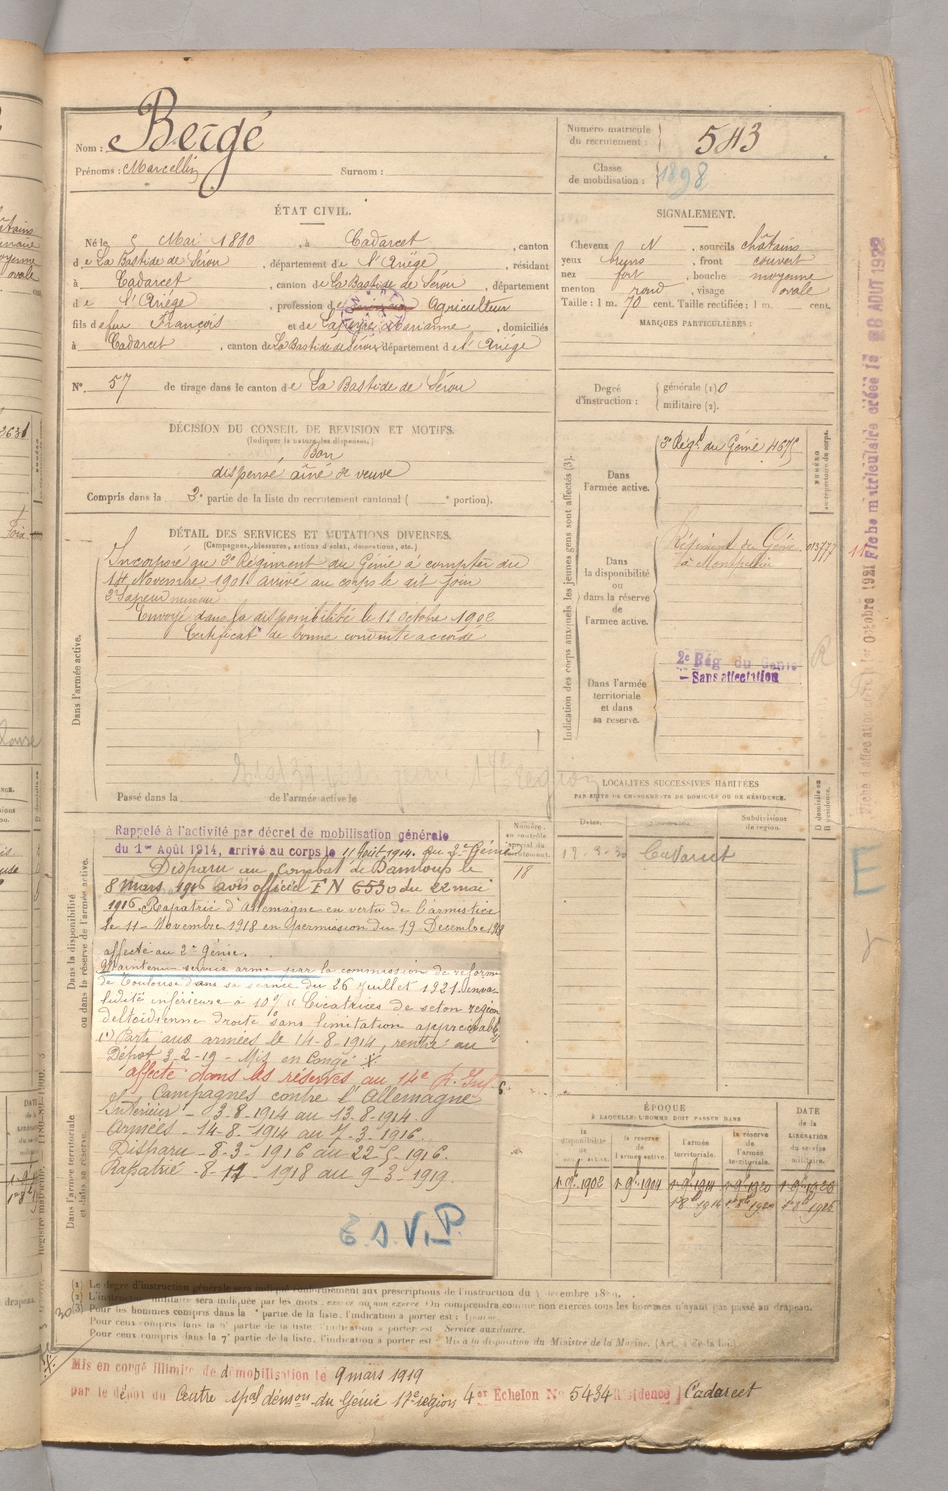 Nom : Bergé
Prénoms : Marcellin Surnom :
Numéro matricule du recrutement : 543
Classe de mobilisation : 1898
ÉTAT CIVIL.
Né le 5 Mai 1880, à Cadarcet, canton
de La Bastide de Sérou, département de l'Ariège, résidant
à Cadarcet, canton de La Bastide de Sérou, département
de l'Ariège, profession de Agriculteur
fils de feu François et de Marianne, domiciliés
à Cadarcet, canton de La Bastide de Sérou, département de l'Ariège
N° 57 de tirage dans le canton de La Bastide de Sérou
SIGNALEMENT.
Cheveux N, sourcils châtains
yeux bruns, front couvert
nez fort, bouche moyenne
menton rond, visage ovale
Taille : 1 m. 70 cent. Taille rectifiée : 1 m. cent.
MARQUES PARTICULIÈRES :
Degré d'instruction : générale (1) 0
militaire (2).
DÉCISION DU CONSEIL DE REVISION ET MOTIFS.
(Indiquer la nature des dispenses.)
Bon
dispensé aîné de veuve
Compris dans la 2e partie de la liste du recrutement cantonal ( portion).
DÉTAIL DES SERVICES ET MUTATIONS DIVERSES.
(Campagnes, blessures, actions d'éclat, décorations, etc.)
Dans l'armée active.
Incorporé au 3e Régiment du Génie à compter du
14 Novembre 1901 arrivé au corps le dit jour
2e Sapeur mineur
Envoyé dans la disponibilité le 12 octobre 1902
Certificat de bonne conduite accordé
Passé dans la de l'armée active le
Indication des corps auxquels les jeunes gens sont affectés (3).
Dans l'armée active.
3e Régt du Génie 4675
NUMÉRO au répertoire du corps.
Dans la disponibilité ou dans la réserve de l'armée active.
Régiment du Génie
à Montpellier
013777
Dans l'armée territoriale et dans sa réserve.
2e Rég du Génie
Sans affectation
LOCALITÉS SUCCESSIVES HABITÉES
PAR SUITE DE CHANGEMENTS DE DOMICILE OU DE RÉSIDENCE.
Dates.
Subdivisions de région.
D domicile ou R résidence.
Cadarcet
Dans la disponibilité ou dans la réserve de l'armée active.
Rappelé à l'activité par décret de mobilisation générale
du 1er Août 1914, arrivé au corps le 11 Août 1914. au 2e Génie
Disparu au Combat de Damloup le
8 mars 1916 avis officiel FN 6530 du 22 mai
1916. Rapatrié d'Allemagne en vertu de l'armistice
le 11 Novembre 1918 en permission du 19 Décembre 1918
affecté au 2e Génie.
Maintenu service armé par la commission de réforme
de Toulouse dans sa séance du 26 juillet 1921. inva-
lidité inférieure à 10% "Cicatrices de seton région
deltoidienne droite sans limitation appréciable"
(1) Parti aux armées le 14-8-1914, rentré au
Dépôt 3-2-19 - Mis en Congé
affecté dans les réserves au 14e R. Inf
Campagnes contre l'Allemagne
Intérieur - 3-8-1914 au 13-8-1914.
Armées - 14-8-1914 au 7-3-1916.
Disparu - 8-3-1916 au 22-5-1916.
Rapatrié - 8-12-1918 au 9-3-1919.
E.S.V.P.
18
Dans l'armée territoriale et dans sa réserve.
ÉPOQUE
À LAQUELLE L'HOMME DOIT PASSER DANS
la disponibilité
la réserve de l'armée active.
l'armée territoriale.
la réserve de l'armée territoriale.
DATE de la LIBÉRATION du service militaire.
1er 9bre 1902 1er 9bre 1904 1er 9bre 1914 1er 9bre 1920 1er 9bre 1926
1er 8bre 1914 1er 8bre 1920 1er 8bre 1926
(1) Le degré d'instruction générale sera indiqué conformément aux prescriptions de l'instruction du
(2) L'instruction militaire sera indiquée par les mots : exercé ou non exercé. On comprendra comme non exercés tous les hommes n'ayant pas passé au drapeau.
(3) Pour les hommes compris dans la partie de la liste, l'indication à porter est :
Pour ceux compris dans la partie de la liste l'indication à porter est Service auxiliaire.
Pour ceux compris dans la 7e partie de la liste, l'indication à porter est Mis à la disposition du Ministre de la Marine.
Mis en congé illimité de démobilisation le 9 mars 1919
par le dépôt du Centre spal démon du Génie 17e région 4er Echelon No 5434 Résidence Cadarcet
Fiche matriculaire créée le 28 AOUT 1922
E